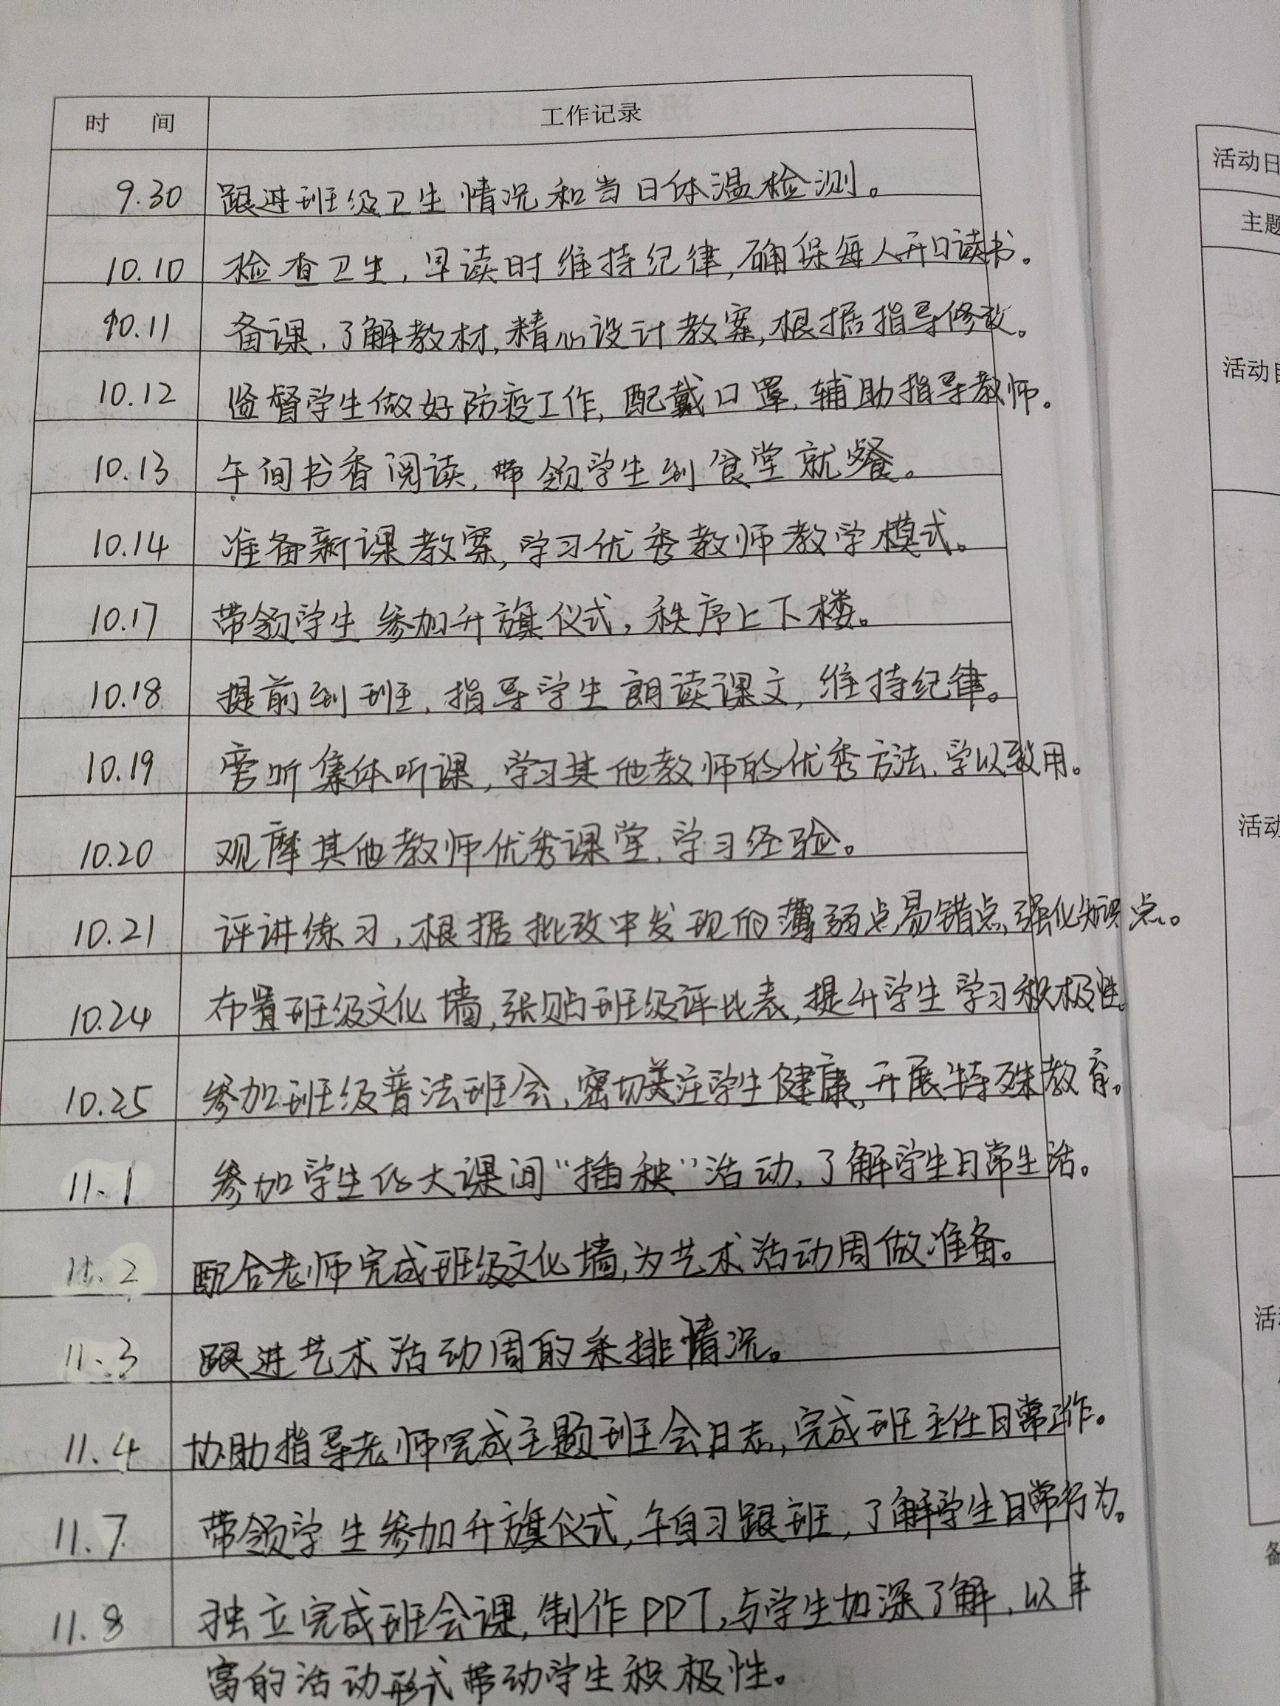 时 间 工作记录
9.30 跟进班级卫生情况和当日体温检测。
10.10 检查卫生,早读时维持纪律,确保每人开口读书。
10.11 备课,了解教材,精心设计教案,根据指导修改。
10.12 监督学生做好防疫工作,配戴口罩,辅助指导教师。
10.13 午间书香阅读,带领学生到食堂就餐。
10.14 准备新课教案,学习优秀教师教学模式。
10.17 带领学生参加升旗仪式,秩序上下楼。
10.18 提前到班,指导学生朗读课文,维持纪律。
10.19 旁听集体听课,学习其他教师的优秀方法,学以致用。
10.20 观摩其他教师优秀课堂,学习经验。
10.21 评讲练习,根据批改中发现的薄弱点易错点,强化知识点。
10.24 布置班级文化墙,张贴班级评比表,提升学生学习积极性
10.25 参加班级普法班会,密切关注学生健康,开展特殊教育。
11.1 参加学生化大课间“插秧”活动,了解学生日常生活。
11.2 配合老师完成班级文化墙,为艺术活动周做准备。
11.3 跟进艺术活动周的采排情况。
11.4 协助指导老师完成主题班会日志,完成班主任日常工作。
11.7 带领学生参加升旗仪式,午自习跟班,了解学生日常行为。
11.8 独立完成班会课,制作PPT,与学生加深了解,以丰
富的活动形式带动学生积极性。
活动日
主题
活动目
活动
活动
备